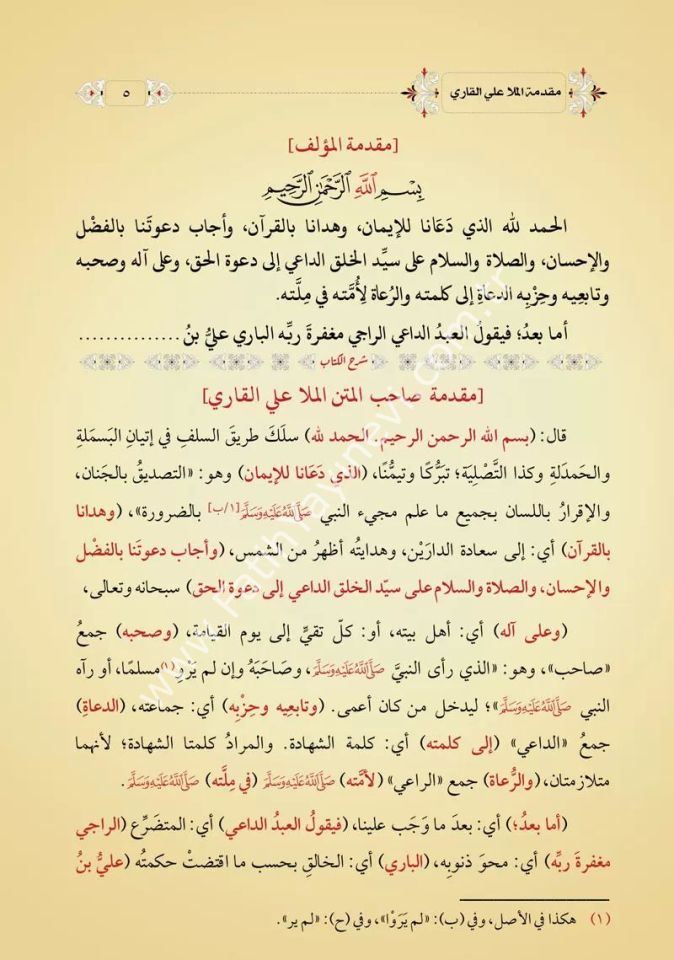 مقدمة الملا علي القاري
٥
[مقدمة المؤلف]
بِسْمِ اللَّهِ الرَّحْمَنِ الرَّحِيمِ
الحمد لله الذي دَعَانا للإيمان، وهدانا بالقرآن، وأجاب دعوتَنا بالفضْل
والإحسان، والصلاة والسلام على سيِّد الخلق الداعي إلى دعوة الحق، وعلى آله وصحبه
وتابعِيه وحِزْبِه الدعاةِ إلى كلمته والرُعاة لِأُمَّته في مِلَّته.
أما بعدُ؛ فيقولُ العبدُ الداعي الراجي مغفرةَ ربِّه الباري عليُّ بنُ...............
شرح الكتاب
[مقدمة صاحب المتن الملا علي القاري]
قال: (بسم الله الرحمن الرحيم. الحمد لله) سلَكَ طريقَ السلفِ في إتيانِ البَسمَلةِ
والحَمدَلةِ وكذا التَّصْلِيَة؛ تبَرُّكًا وتيمُّنًا، (الذي دَعَانا للإيمان) وهو: «التصديقُ بالجَنان،
والإقرارُ باللسان بجميع ما علم مجيء النبي ﷺ[١/ب] بالضرورة»، (وهدانا
بالقرآن) أي: إلى سعادة الدارَيْن، وهدايتُه أظهرُ من الشمس، (وأجاب دعوتَنا بالفضْل
والإحسان، والصلاة والسلام على سيّد الخلق الداعي إلى دعوة الحق) سبحانه وتعالى،
(وعلى آله) أي: أهل بيته، أو: كلّ تقيٍّ إلى يوم القيامة، (وصحبه) جمعُ
«صاحب»، وهو: «الذي رأى النبيَّ ﷺ، وصَاحَبَهُ وإن لم يَرْو(١)مسلمًا، أو رآه
النبي ﷺ»؛ ليدخل من كان أعمى. (وتابعِيه وحِزْبِه) أي: جماعته، (الدعاةِ)
جمعُ «الداعي» (إلى كلمته) أي: كلمة الشهادة. والمرادُ كلمتا الشهادة؛ لأنهما
متلازمتان، (والرُّعاة) جمع «الراعي» (لأمَّته) ﷺ (في مِلَّته) ﷺ.
(أما بعدُ؛) أي: بعدَ ما وَجَب علينا، (فيقولُ العبدُ الداعي) أي: المتضَرِّع (الراجي
مغفرةَ ربِّه) أي: محوَ ذنوبِه، (الباري) أي: الخالقِ بحسب ما اقتضتْ حكمتُه (عليُّ بنُ
(١) هكذا في الأصل، وفي (ب): «لم يَرَوْا»، وفي (ح): «لم ير».